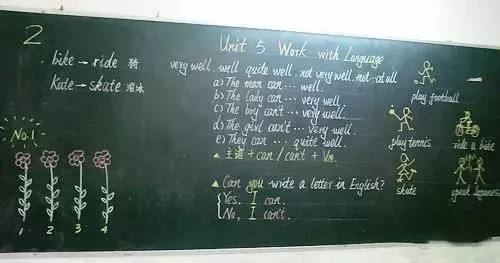 2
bike → ride 骑
Kate → skate 溜冰
No.1
1 2 3 4
Unit 5 Work with Language
very well. well quite well. not very well. not…at all
a) The man can … well.
b) The lady can … very well.
c) The boy can't … very well.
d) The girl can't … very well.
e) They can … quite well.
▲ 主语 + can / can't + V原
▲ Can you write a letter in English?
Yes, I can.
No, I can't.
play football
play tennis
ride a bike
skate
speak Japanese